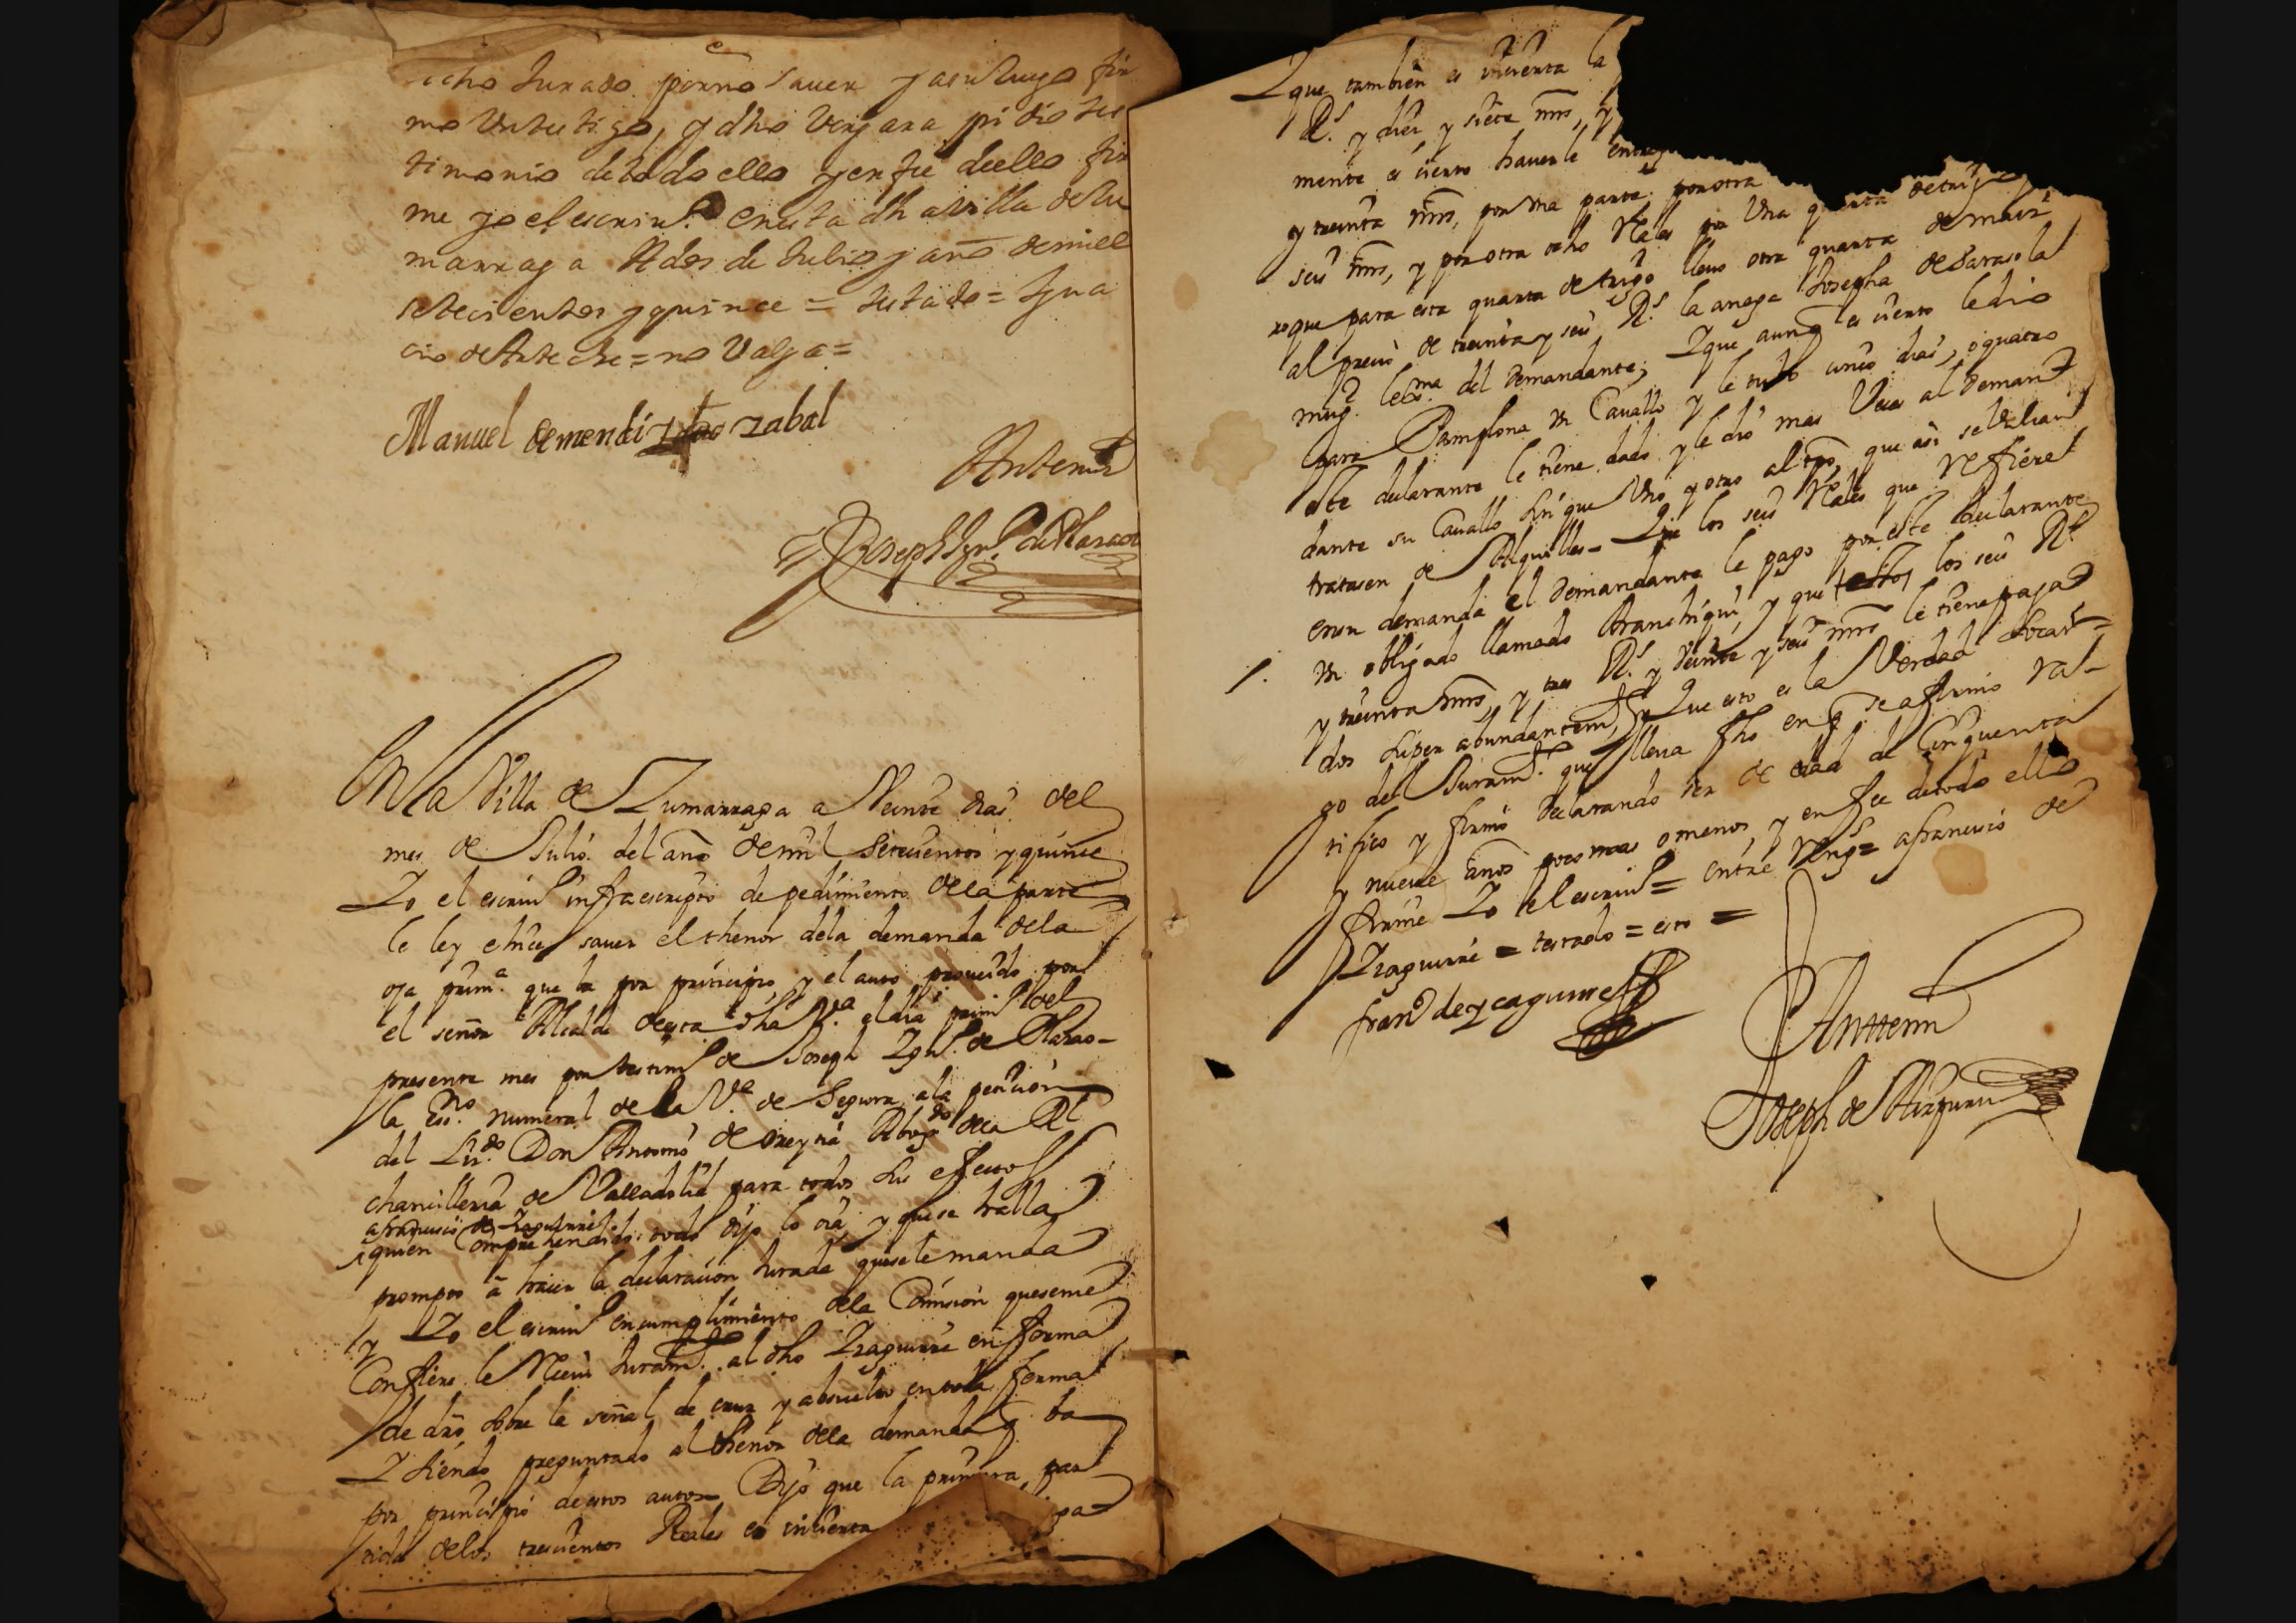 dicho Jurado por no saver y a su ruego fir
mo un testigo, y dho Vergara pidio tes
timonio de todo ello y en fee de ello fir
me yo el escriuno en esta dha villa de Zu
marraga A dos de Julio y año de mill
setecientos y quince = testado = Igna
cio de Arteche = no Valga =
Manuel de mendizabal
Antemi
Joseph Ign.o de Plaraola
En la Villa de Zumarraga a Veinte dias del
mes de Julio del año de mil setecientos y quince
Yo el escriuno infraescripto de pedimiento de la parte
le ley e hice saver el thenor de la demanda de la
oja prim.a que ba por principio y el auto proueido por
el señor Alcalde de esta dha V.a el dia prim.o del
presente mes por testim.o de Joseph Ign.o de Plarao-
la Ess.no numeral de la V.a de Segura a la peticion
del Liz.do Don Antonio de oreytia Abog.do de la Rl
chancilleria de Valladolid para todos sus effectos
a francisco de Yzaguirre
quien comprehendido todo dijo lo oia y que se halla
prompto à hacer la declaracion Jurada que se le manda
y Yo el escriuno en cumplimiento de la Comision que se me
Confiere le Reciui Juram.to al dho Yzaguirre en forma
de dro sobre la señal de cruz y absuelto en toda forma
Y siendo preguntado al thenor de la demanda q ba
por principio de estos autos = Dijo que la primera par
tida de los trescientos Reales es incierta
Y que tambien es incierta la
R.s y diez y siete mrs, y
mente es cierto hauerle entreg
y treinta mrs, por una parte, por otra
seis mrs, y por otra ocho Reales por Una quarta de trigo
xo que para esta quarta de trigo lleuo otra quarta de maiz
al precio de treinta y seis R.s la anega Josepha de Sarasola
mug.r lex.ma del demandante; Y que aunq es cierto le dio
para Pamplona un Cauallo y le tubo cinco dias, o quatro
este declarante le tiene dado y le dio mas Veces al deman
dante su Cauallo sin que Uno y otro al tpo que asi se Valian
tratasen de Alquiller = Que los seis Reales que Refiere
en su demanda el demandante le pago por este declarante
un obligado llamado Aranchigui, y que estos los seis R.s
y treinta mrs, y tres R.s y veinte y seis mrs le tiene paga
dos superabundantem.te y Que esto es la Verdad Socar=
go del Juram.to que lleua fho en q se afirmo ra-
tifico y firmo declarando ser de edad de Cinquenta
y nueue años poco mas o menos, y en fee de todo ello
firme Yo el escriuno = entre Reng.s = a francisco de
Yzaguirre = testado = esto =
fran.co de yçaguirre
Anttemi
Joseph de Aizpuru